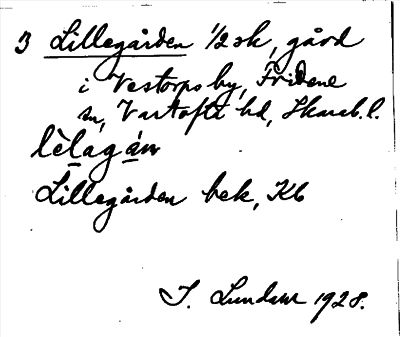 3 Lillegården 1/2 sk, gård
i Vestorps by, Fridene
sn, Vartofta hd, Skarab. l.
lèlagán
Lillegården bek, Kb
J. Lundahl 1928.